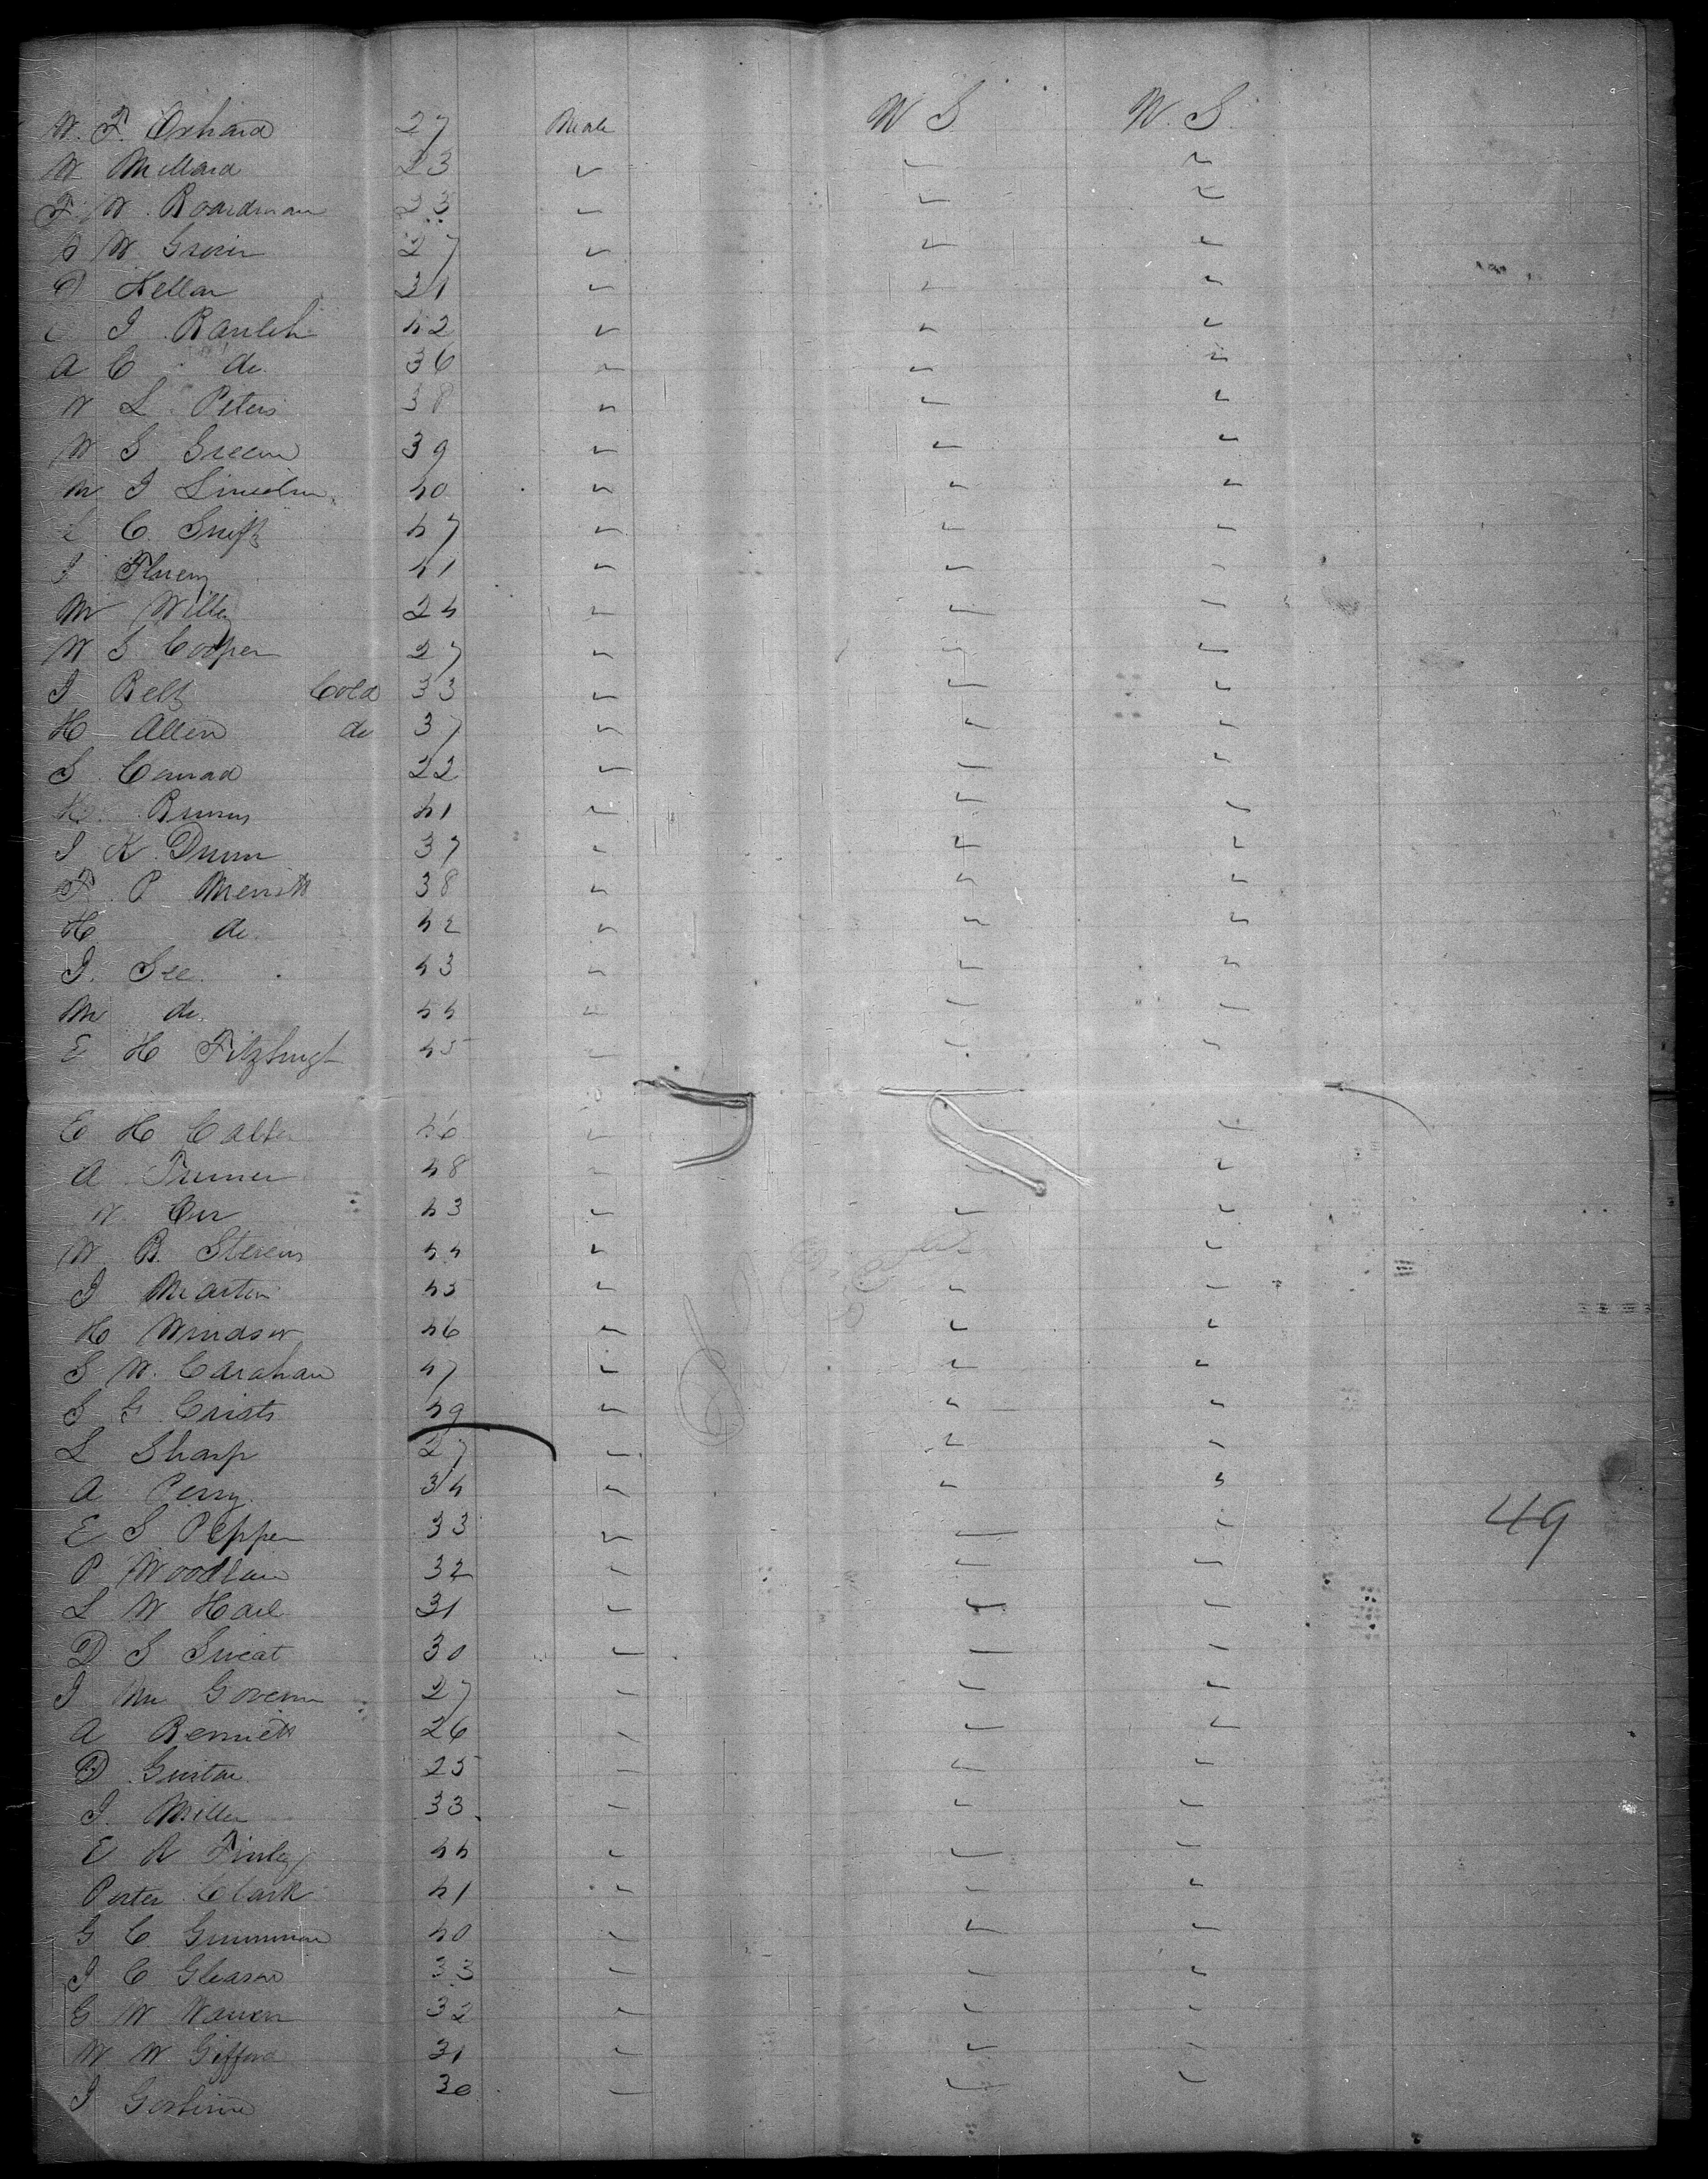 W. F. Orhard 27 Male W S W. S.
W Millard 23 〃 〃 〃
F. W. Boardman 23 〃 〃 〃
W Grover 27 〃 〃 〃
Kellar 31 〃 〃 〃
J Rauleh 42 〃 〃 〃
A C do 36 〃 〃 〃
W L Peters 38 〃 〃 〃
W S Green 39 〃 〃 〃
M J Lincoln 40 〃 〃 〃
C. Swift 47 〃 〃 〃
J Florey 41 〃 〃 〃
M Willey 24 〃 〃 〃
W S Cooper 27 〃 〃 〃
J Belt Cold 33 〃 〃 〃
H Allen do 37 〃 〃 〃
S Conrad 22 〃 〃 〃
H. Bruns 41 〃 〃 〃
J K. Dunn 37 〃 〃 〃
F. P Merritt 38 〃 〃 〃
H do 42 〃 〃 〃
J. See 43 〃 〃 〃
M do 44 〃 〃 〃
E H Fitzhugh 45 〃 〃 〃
E H Calter 46 〃 〃
A Turner 48 〃 〃 〃
W Orr 43 〃 〃 〃
W B. Stevens 44 〃 〃 〃
J Martin 45 〃 〃 〃
H Windsor 46 〃 〃 〃
S W. Carahan 47 〃 〃 〃
S G Crists 49 〃 〃 〃
L Sharp 27 〃 〃 〃
A Perry 34 〃 〃 〃
E S Pepper 33 〃 〃 〃
49
P Woodlain 32 〃 〃 〃
L W Hail 31 〃 〃 〃
D S Sweat 30 〃 〃 〃
J Mc Govern 27 〃 〃 〃
A Bennett 26 〃 〃 〃
D Guitar 25 〃 〃 〃
J. Miller 33 〃 〃 〃
E R Finley 44 〃 〃 〃
Porter Clark 41 〃 〃 〃
G C Grimmon 40 〃 〃 〃
J C Gleason 33 〃 〃 〃
G W Warren 32 〃 〃 〃
W W Gifford 31 〃 〃 〃
J 30 〃 〃 〃